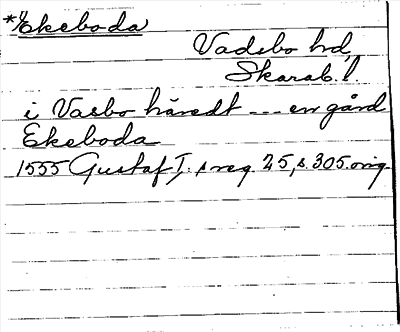 *Ekeboda
Vadsbo hd,
Skarab. l.
i Vasbo häredt --- en gård
Ekeboda
1555 Gustaf I:s reg. 25, s. 305. orig.